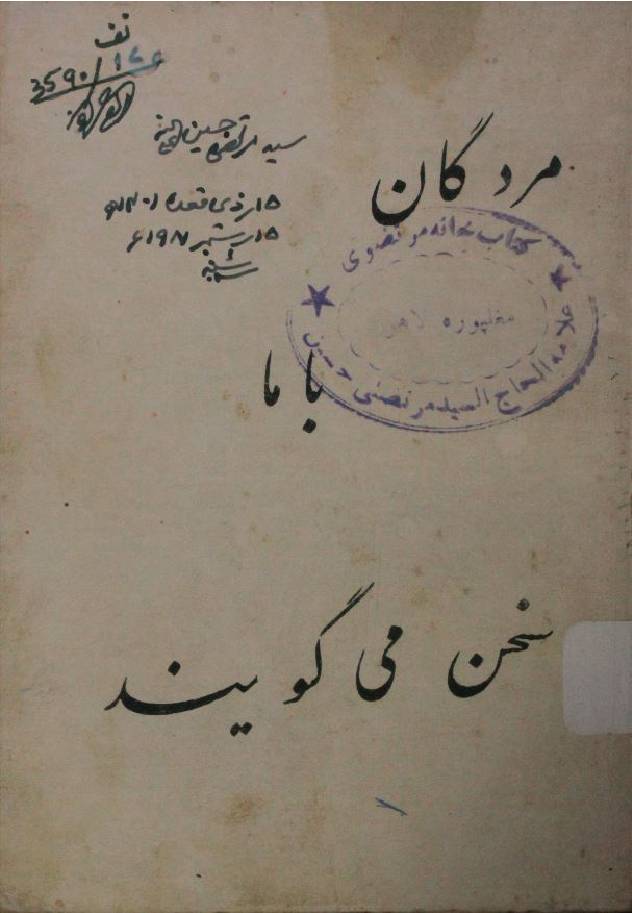 نف
3590/166
سید مرتضی حسین
۱۵ ذی قعده ۱۴۰۱ھ
۱۵ ستمبر ۱۹۸۱ء
مردگان
کتاب خانه مرتضوی
مغلپوره لاهور
علامه الحاج السید مرتضی حسین
با ما
سخن می گویند